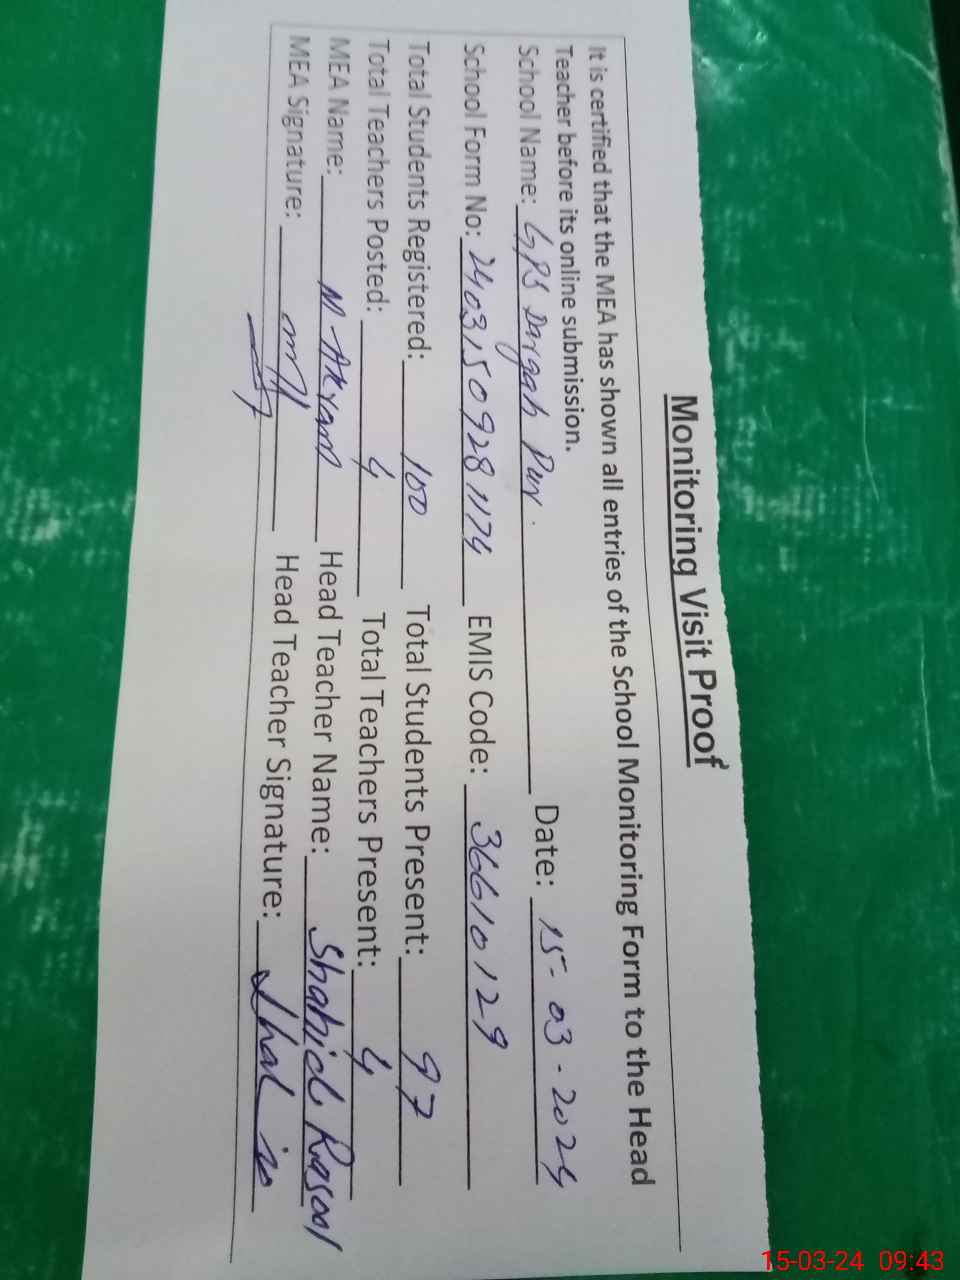 Monitoring Visit Proof
It is certified that the MEA has shown all entries of the School Monitoring Form to the Head
Teacher before its online submission.
School Name: GPS Dargah Pur. Date: 15-03-2024
School Form No: 24031509281174 EMIS Code: 36610129
Total Students Registered: 100 Total Students Present: 97
Total Teachers Posted: 4 Total Teachers Present: 4
MEA Name: M Akram Head Teacher Name: Shahid Rasool
MEA Signature: Head Teacher Signature:
15-03-24 09:43